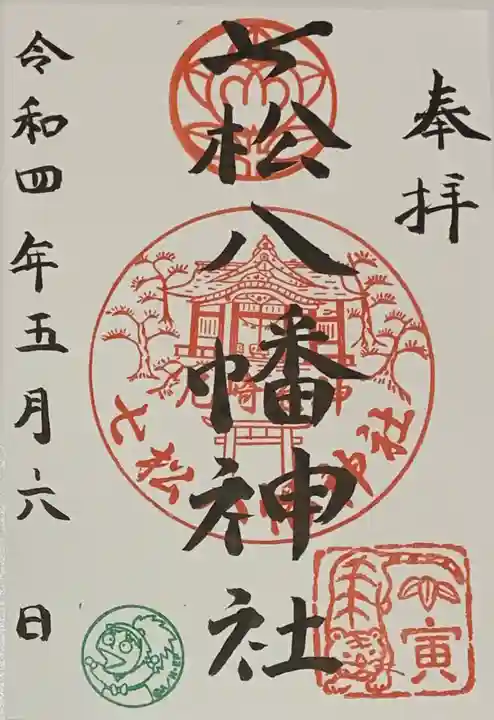 奉拝
七松八幡神社
令和四年五月六日
尼崎
七松
神社
寅